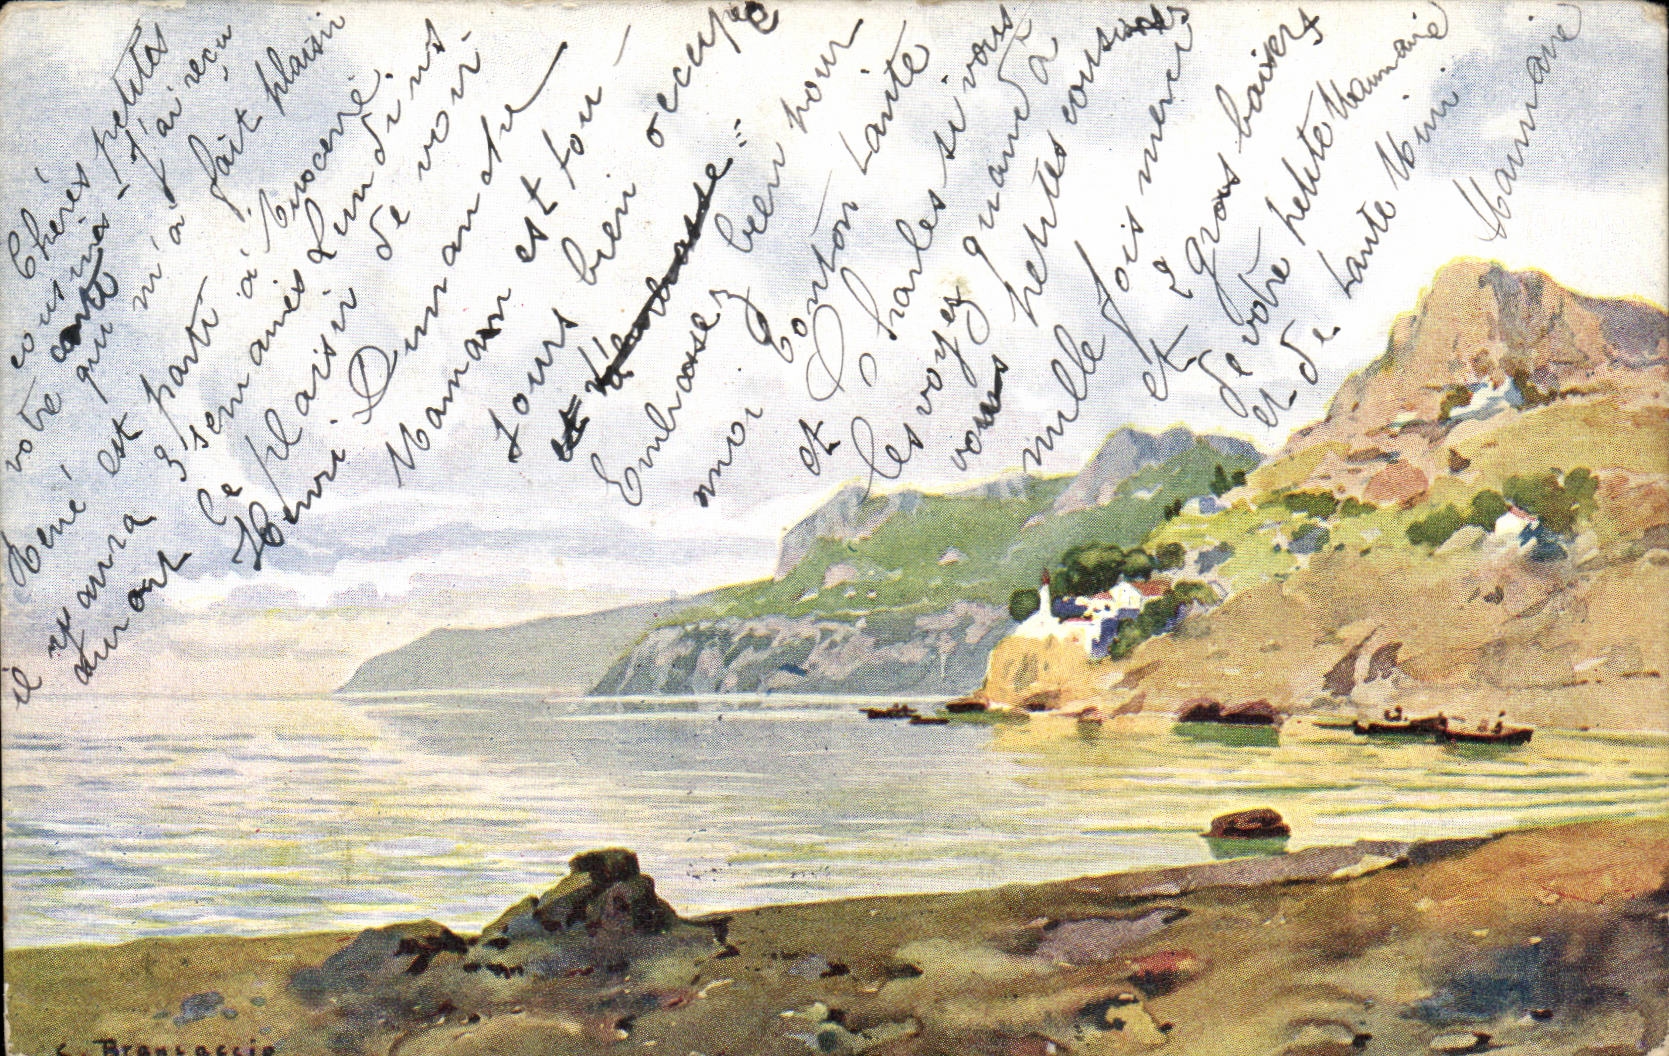 Chères petites
cousines - J'ai reçu
votre carte
qui m'a fait plaisir
René est parti à
il y aura 3 semaines Lundi ns
aurons le plaisir de voir
Henri Dimanche
Maman est tou-
jours bien occupée
et
Embrassez bien pour
moi tonton tante
et Charles si vous
les voyez quand à
vous petites cousines
mille fois merci
et 2 gros baisers
de votre petite Mannanie
et de tante Mimi
Mannanie
C. Brancaccio